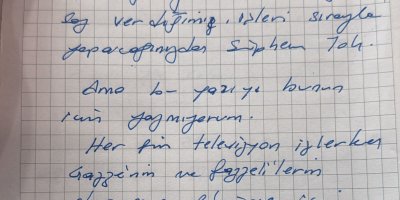 Söz verdiğimiz işleri sırayla
yapacağınızdan şüphem yok.
Ama bu yazıyı bunun
için yazmıyorum.
Her gün televizyon izlerken
Gazze'nin ve Gazzelilerin